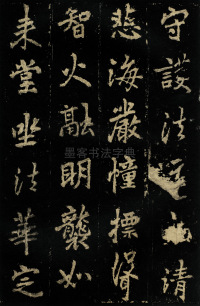 守護法清
慈海嚴幢標聳
智火融明襲如
来堂坐法華定
墨客书法字典